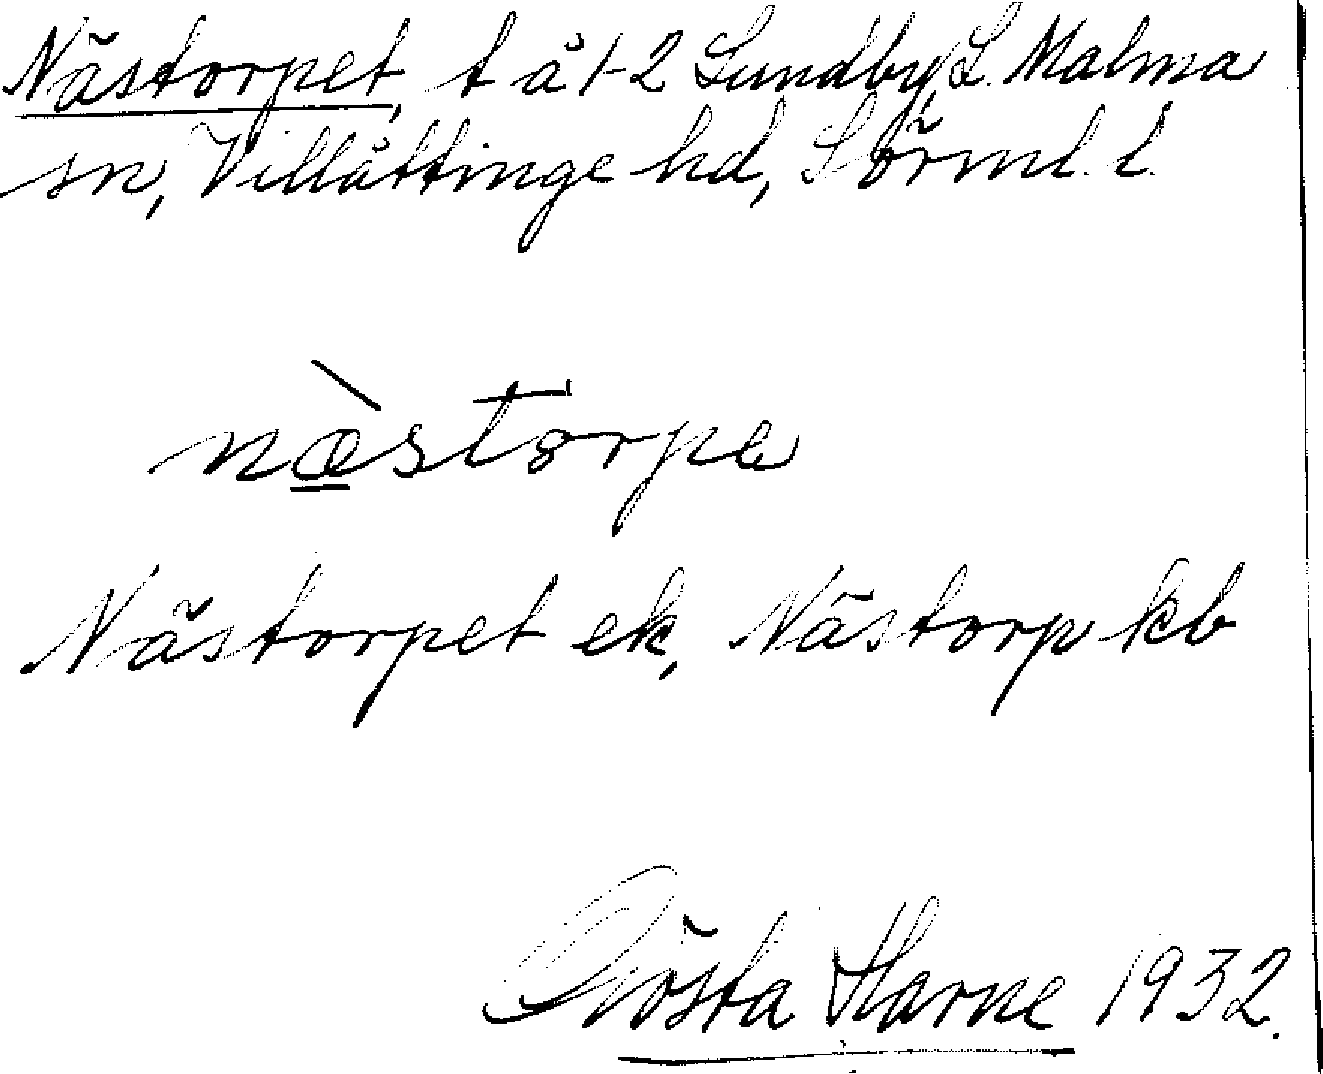 Nästorpet, t å 1-2 Lundby, L. Malma
sn, Villåttinge hd, Sörml. l.
næ̀storpa
Nästorpet ek, Nästorp kb
Gösta Harne 1932.